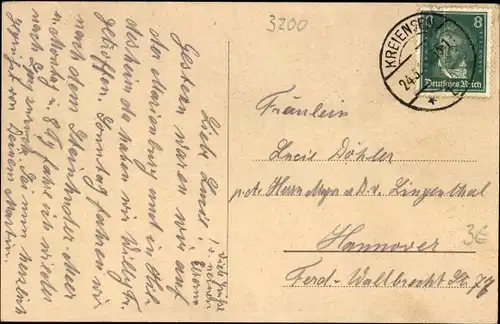 3200
KREIENSEN
24.5
8
Deutsches Reich
Liebe Lucie!
Gestern waren wir auf
der Marienburg und in
haben wir Willy Fr.
getroffen. Sonntag fahren wir
nach dem Steinhuder Meer
u. Montag u. fahre ich wieder
nach zurück. Sei nun herzlich
gegrüßt von Deinem Martin.
Fräulein
Lucie Döhler
Herrn Major a. D. v. Lingenthal
Hannover
Ferd. Wallbrecht Str. 77
3€